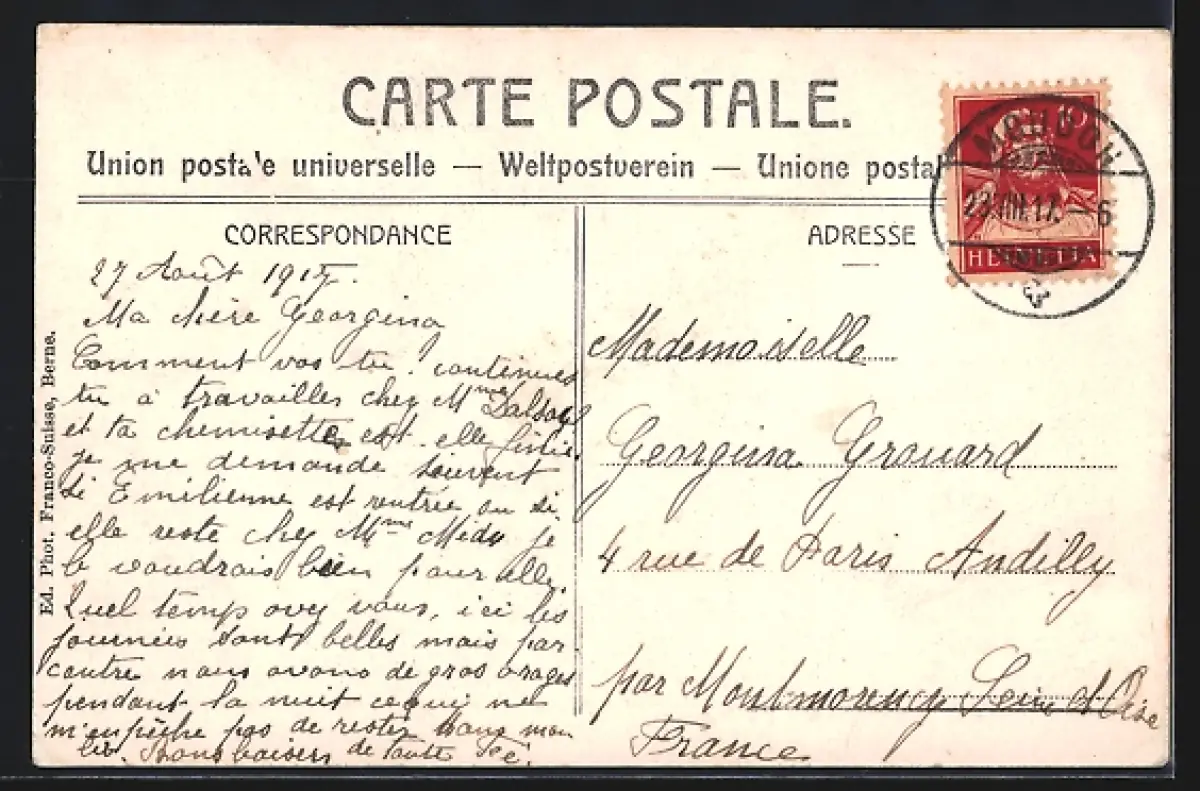 CARTE POSTALE.
Union postale universelle — Weltpostverein — Unione postal
CORRESPONDANCE
27 Août 1917.
Ma chère Georgina
Comment vas tu? continues
tu à travailler chez Mme
et ta chemisette est-elle finie.
je me demande souvent
si Emilienne est rentrée ou si
elle reste chez Mme je
le voudrais bien pour elle.
Quel temp avez vous, ici les
journées sont belles mais par
contre nous avons de gros orages
pendant la nuit ce qui ne
m'enpêche pas de rester dans mon
lit. Bons baisers de Tante
Ed. Phot. Franco-Suisse, Berne.
ADRESSE
Mademoiselle
Georgina Grouard
4 rue de Paris Andilly
par Montmorency Seine et Oise
France
10
HELVETIA
MOUDON
VIII.17.–6